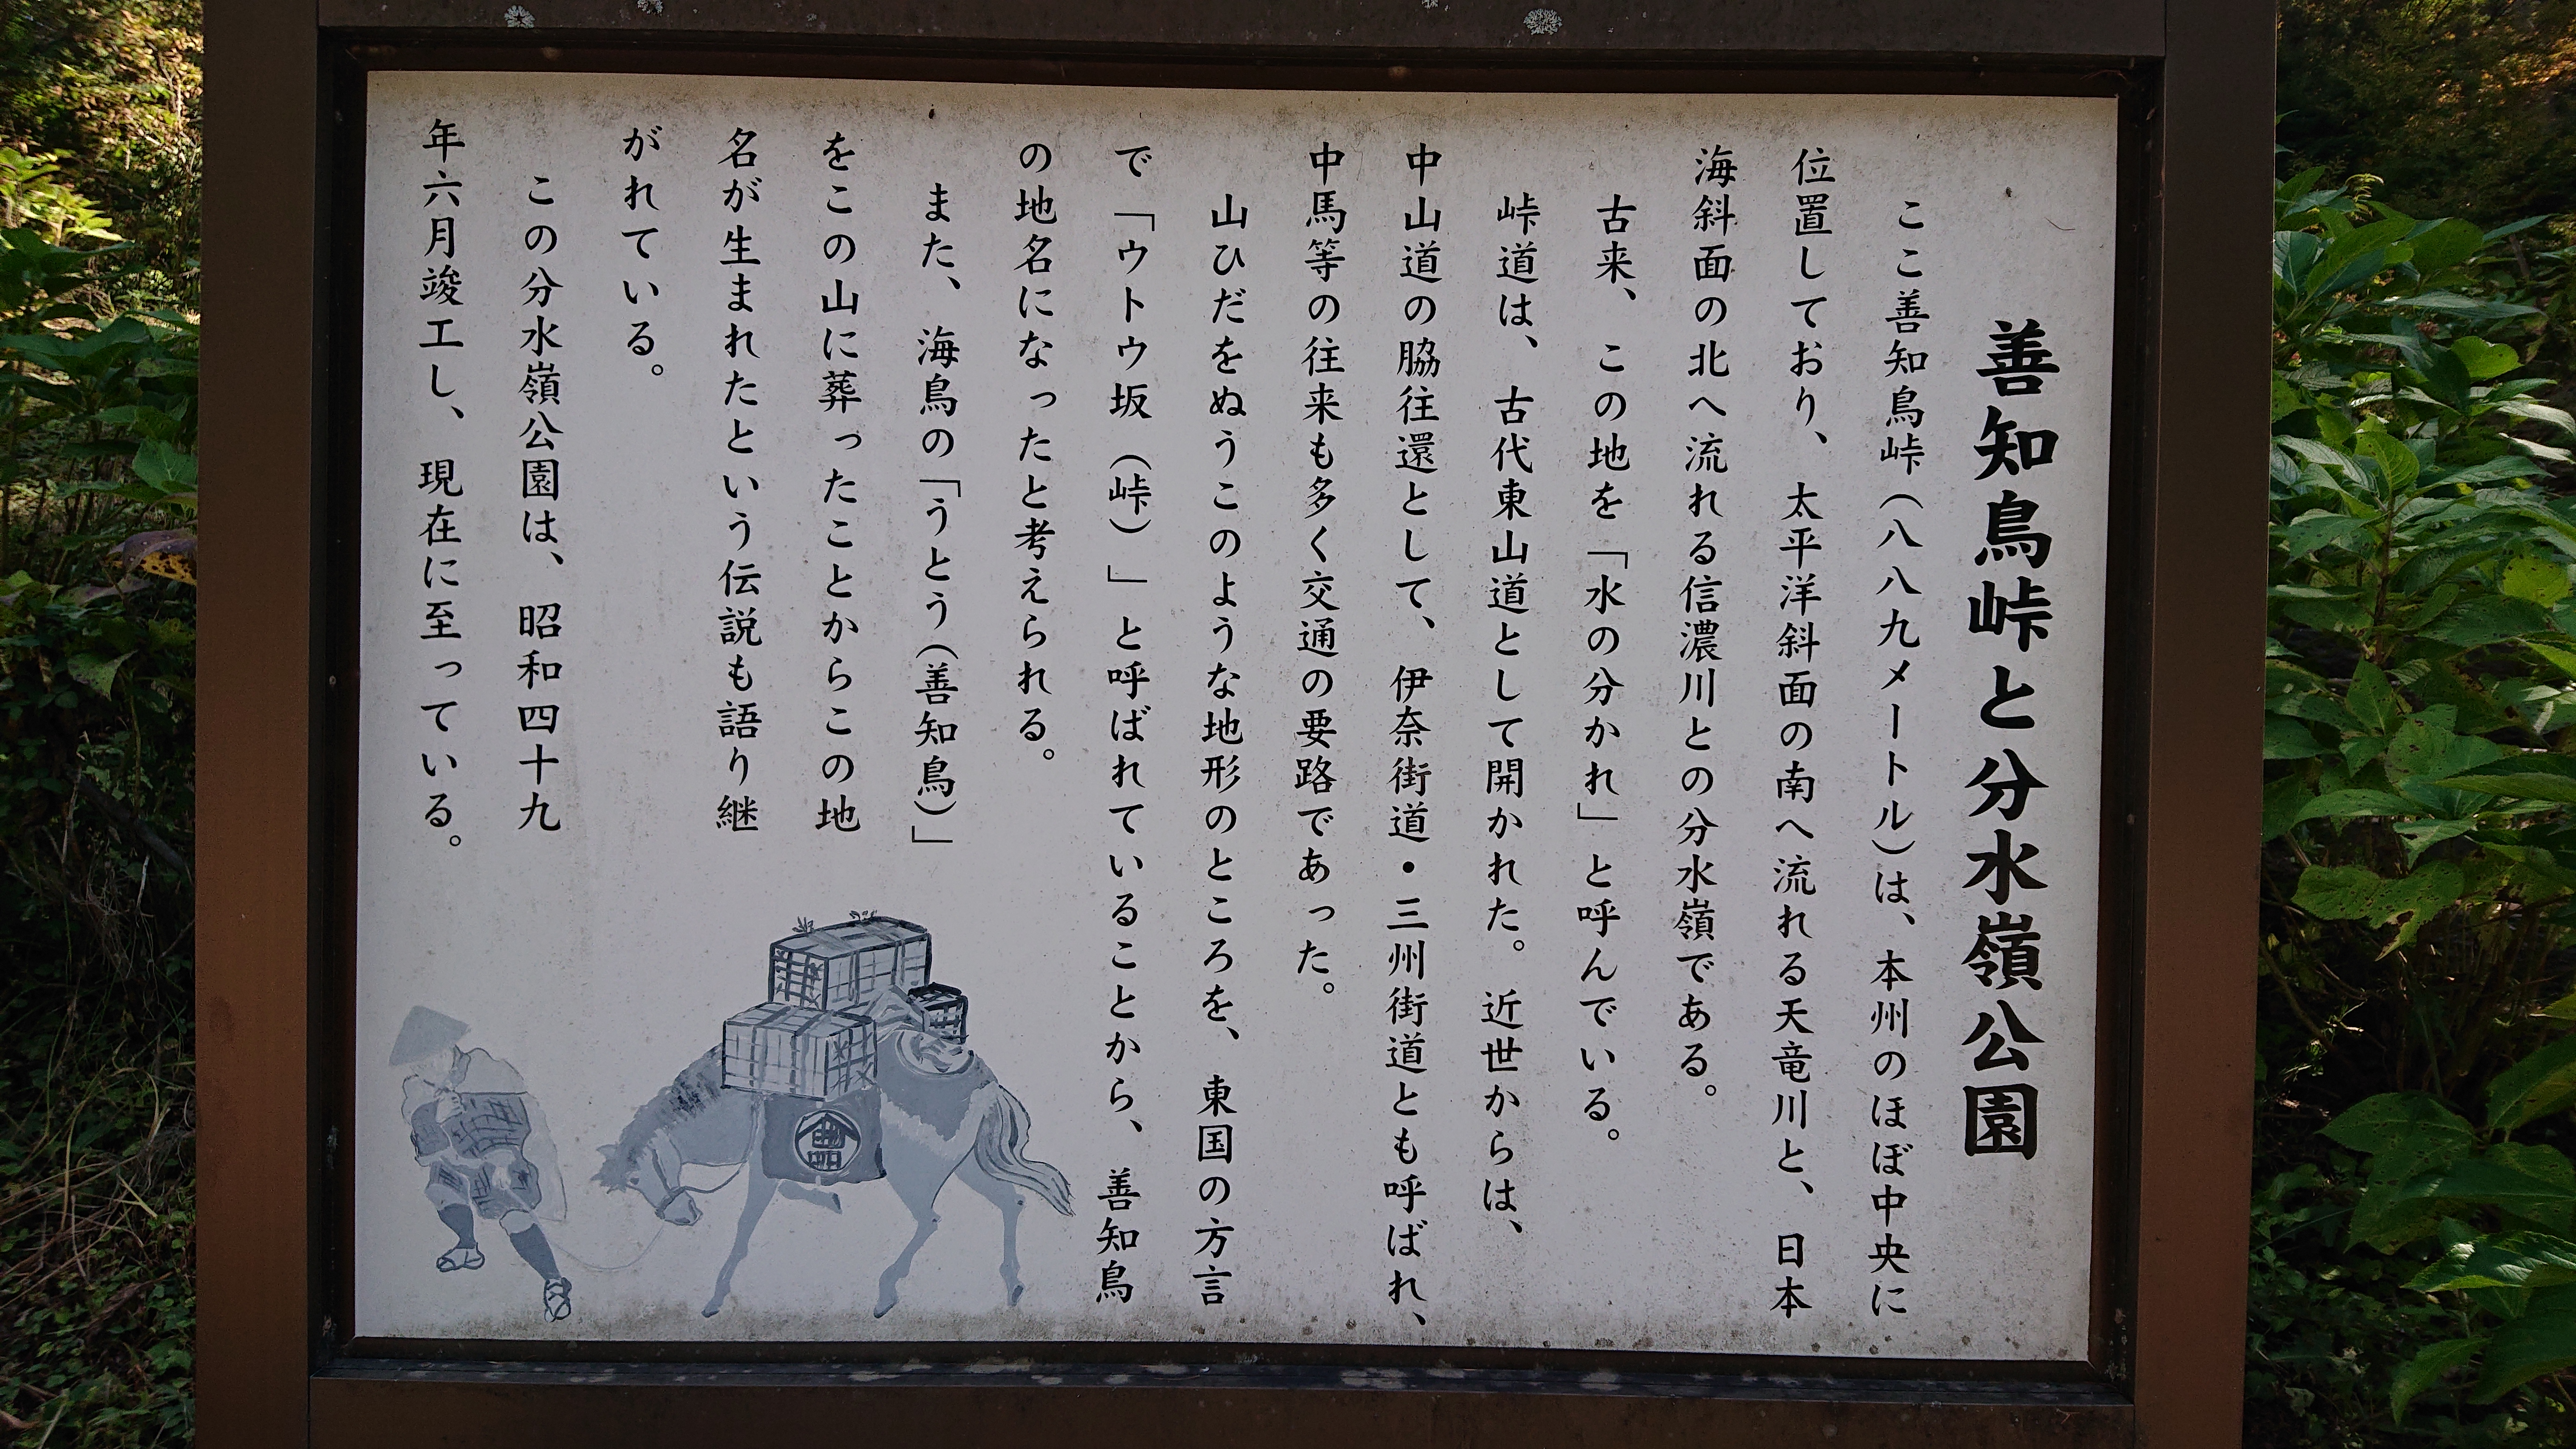 善知鳥峠と分水嶺公園
ここ善知鳥峠（八八九メートル）は、本州のほぼ中央に
位置しており、太平洋斜面の南へ流れる天竜川と、日本
海斜面の北へ流れる信濃川との分水嶺である。
古来、この地を「水の分かれ」と呼んでいる。
峠道は、古代東山道として開かれた。近世からは、
中山道の脇往還として、伊奈街道・三州街道とも呼ばれ、
中馬等の往来も多く交通の要路であった。
山ひだをぬうこのような地形のところを、東国の方言
で「ウトウ坂（峠）」と呼ばれていることから、善知鳥
の地名になったと考えられる。
また、海鳥の「うとう（善知鳥）」
をこの山に葬ったことからこの地
名が生まれたという伝説も語り継
がれている。
この分水嶺公園は、昭和四十九
年六月竣工し、現在に至っている。